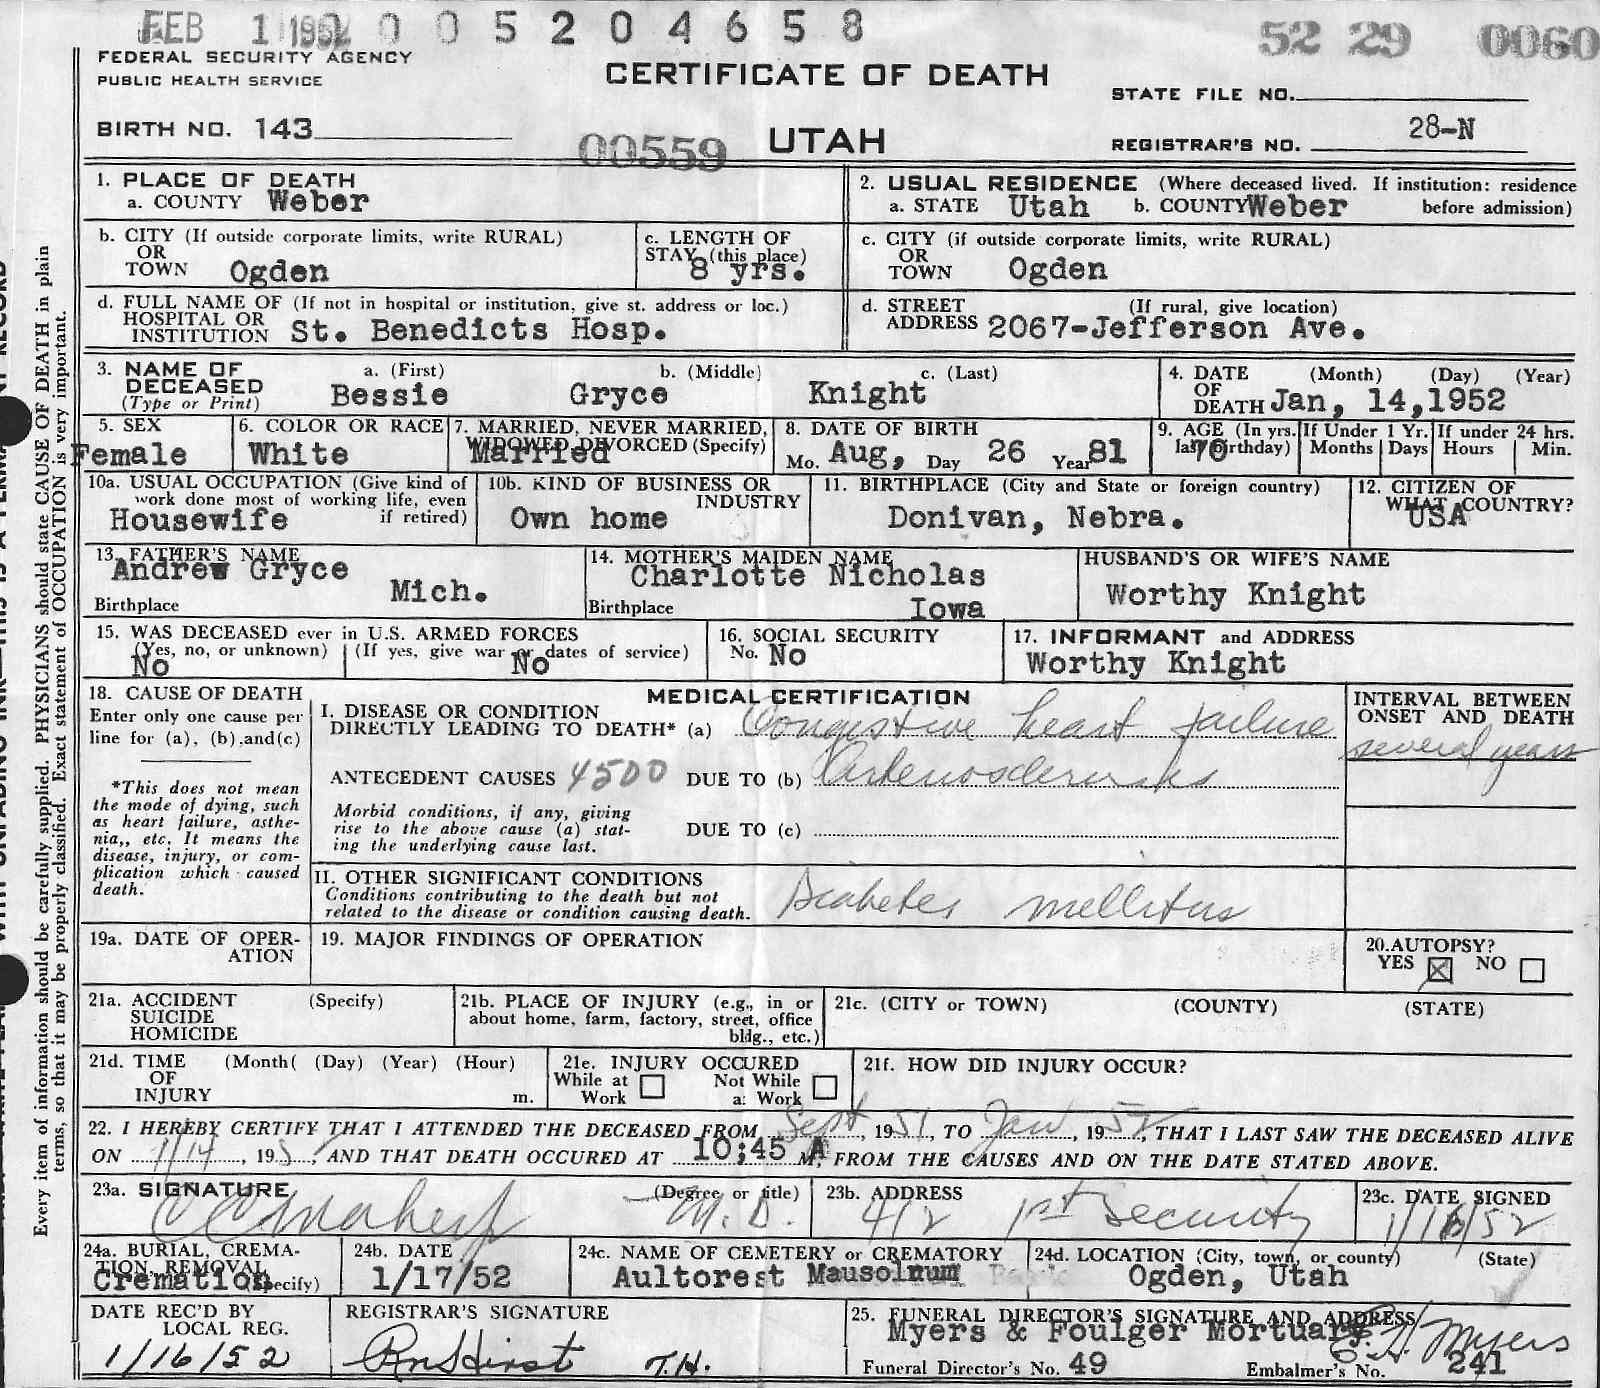 FEB 1 1952 0 0 5 2 0 4 6 5 8 52 29 0060
FEDERAL SECURITY AGENCY
PUBLIC HEALTH SERVICE
CERTIFICATE OF DEATH
STATE FILE NO.
BIRTH NO. 143
00559 UTAH
REGISTRAR'S NO. 28-N
1. PLACE OF DEATH
a. COUNTY Weber
2. USUAL RESIDENCE (Where deceased lived. If institution: residence
a. STATE Utah b. COUNTY Weber before admission)
b. CITY (If outside corporate limits, write RURAL)
OR
TOWN Ogden
c. LENGTH OF
STAY (this place)
8 yrs.
c. CITY (if outside corporate limits, write RURAL)
OR
TOWN Ogden
d. FULL NAME OF (If not in hospital or institution, give st. address or loc.)
HOSPITAL OR
INSTITUTION St. Benedicts Hosp.
d. STREET (If rural, give location)
ADDRESS 2067-Jefferson Ave.
3. NAME OF a. (First) b. (Middle) c. (Last)
DECEASED Bessie Gryce Knight
(Type or Print)
4. DATE (Month) (Day) (Year)
OF
DEATH Jan, 14,1952
5. SEX
Female
6. COLOR OR RACE
White
7. MARRIED, NEVER MARRIED,
WIDOWED, DIVORCED (Specify)
Married
8. DATE OF BIRTH
Mo. Aug, Day 26 Year 81
9. AGE (In yrs.
last birthday)
70
If Under 1 Yr.
Months Days
If under 24 hrs.
Hours Min.
10a. USUAL OCCUPATION (Give kind of
work done most of working life, even
if retired)
Housewife
10b. KIND OF BUSINESS OR
INDUSTRY
Own home
11. BIRTHPLACE (City and State or foreign country)
Donivan, Nebra.
12. CITIZEN OF
WHAT COUNTRY?
USA
13. FATHER'S NAME
Andrew Gryce
Mich.
Birthplace
14. MOTHER'S MAIDEN NAME
Charlotte Nicholas
Birthplace Iowa
HUSBAND'S OR WIFE'S NAME
Worthy Knight
15. WAS DECEASED ever in U.S. ARMED FORCES
(Yes, no, or unknown) (If yes, give war or dates of service)
No No
16. SOCIAL SECURITY
No. No
17. INFORMANT and ADDRESS
Worthy Knight
18. CAUSE OF DEATH
Enter only one cause per
line for (a), (b),and(c)
*This does not mean
the mode of dying, such
as heart failure, asthe-
nia,, etc. It means the
disease, injury, or com-
plication which caused
death.
MEDICAL CERTIFICATION
I. DISEASE OR CONDITION
DIRECTLY LEADING TO DEATH* (a) Congestive heart failure
ANTECEDENT CAUSES 4500 DUE TO (b) Arteriosclerosis
Morbid conditions, if any, giving
rise to the above cause (a) stat-
ing the underlying cause last.
DUE TO (c)
II. OTHER SIGNIFICANT CONDITIONS
Conditions contributing to the death but not
related to the disease or condition causing death.
Diabetes mellitus
INTERVAL BETWEEN
ONSET AND DEATH
several years
19a. DATE OF OPER-
ATION
19. MAJOR FINDINGS OF OPERATION
20.AUTOPSY?
YES NO
21a. ACCIDENT (Specify)
SUICIDE
HOMICIDE
21b. PLACE OF INJURY (e.g., in or
about home, farm, factory, street, office
bldg., etc.)
21c. (CITY or TOWN) (COUNTY) (STATE)
21d. TIME (Month( (Day) (Year) (Hour)
OF
INJURY m.
21e. INJURY OCCURED
While at Work
Not While a: Work
21f. HOW DID INJURY OCCUR?
22. I HEREBY CERTIFY THAT I ATTENDED THE DECEASED FROM Sept, 1951, TO Jan, 1952, THAT I LAST SAW THE DECEASED ALIVE
ON 1/14, 195, AND THAT DEATH OCCURED AT 10;45 A M, FROM THE CAUSES AND ON THE DATE STATED ABOVE.
23a. SIGNATURE (Degree or title)
M.D.
23b. ADDRESS
412 1st Security
23c. DATE SIGNED
1/16/52
24a. BURIAL, CREMA-
TION, REMOVAL
(Specify)
Cremation
24b. DATE
1/17/52
24c. NAME OF CEMETERY or CREMATORY
Aultorest Mausolnum
24d. LOCATION (City, town, or county) (State)
Ogden, Utah
DATE REC'D BY
LOCAL REG.
1/16/52
REGISTRAR'S SIGNATURE
T.H.
25. FUNERAL DIRECTOR'S SIGNATURE AND ADDRESS
Myers & Foulger Mortuary. Myers
Funeral Director's No. 49 Embalmer's No. 241
Every item of information should be carefully supplied. PHYSICIANS should state CAUSE OF DEATH in plain
terms, so that it may be properly classified. Exact statement of OCCUPATION is very important.